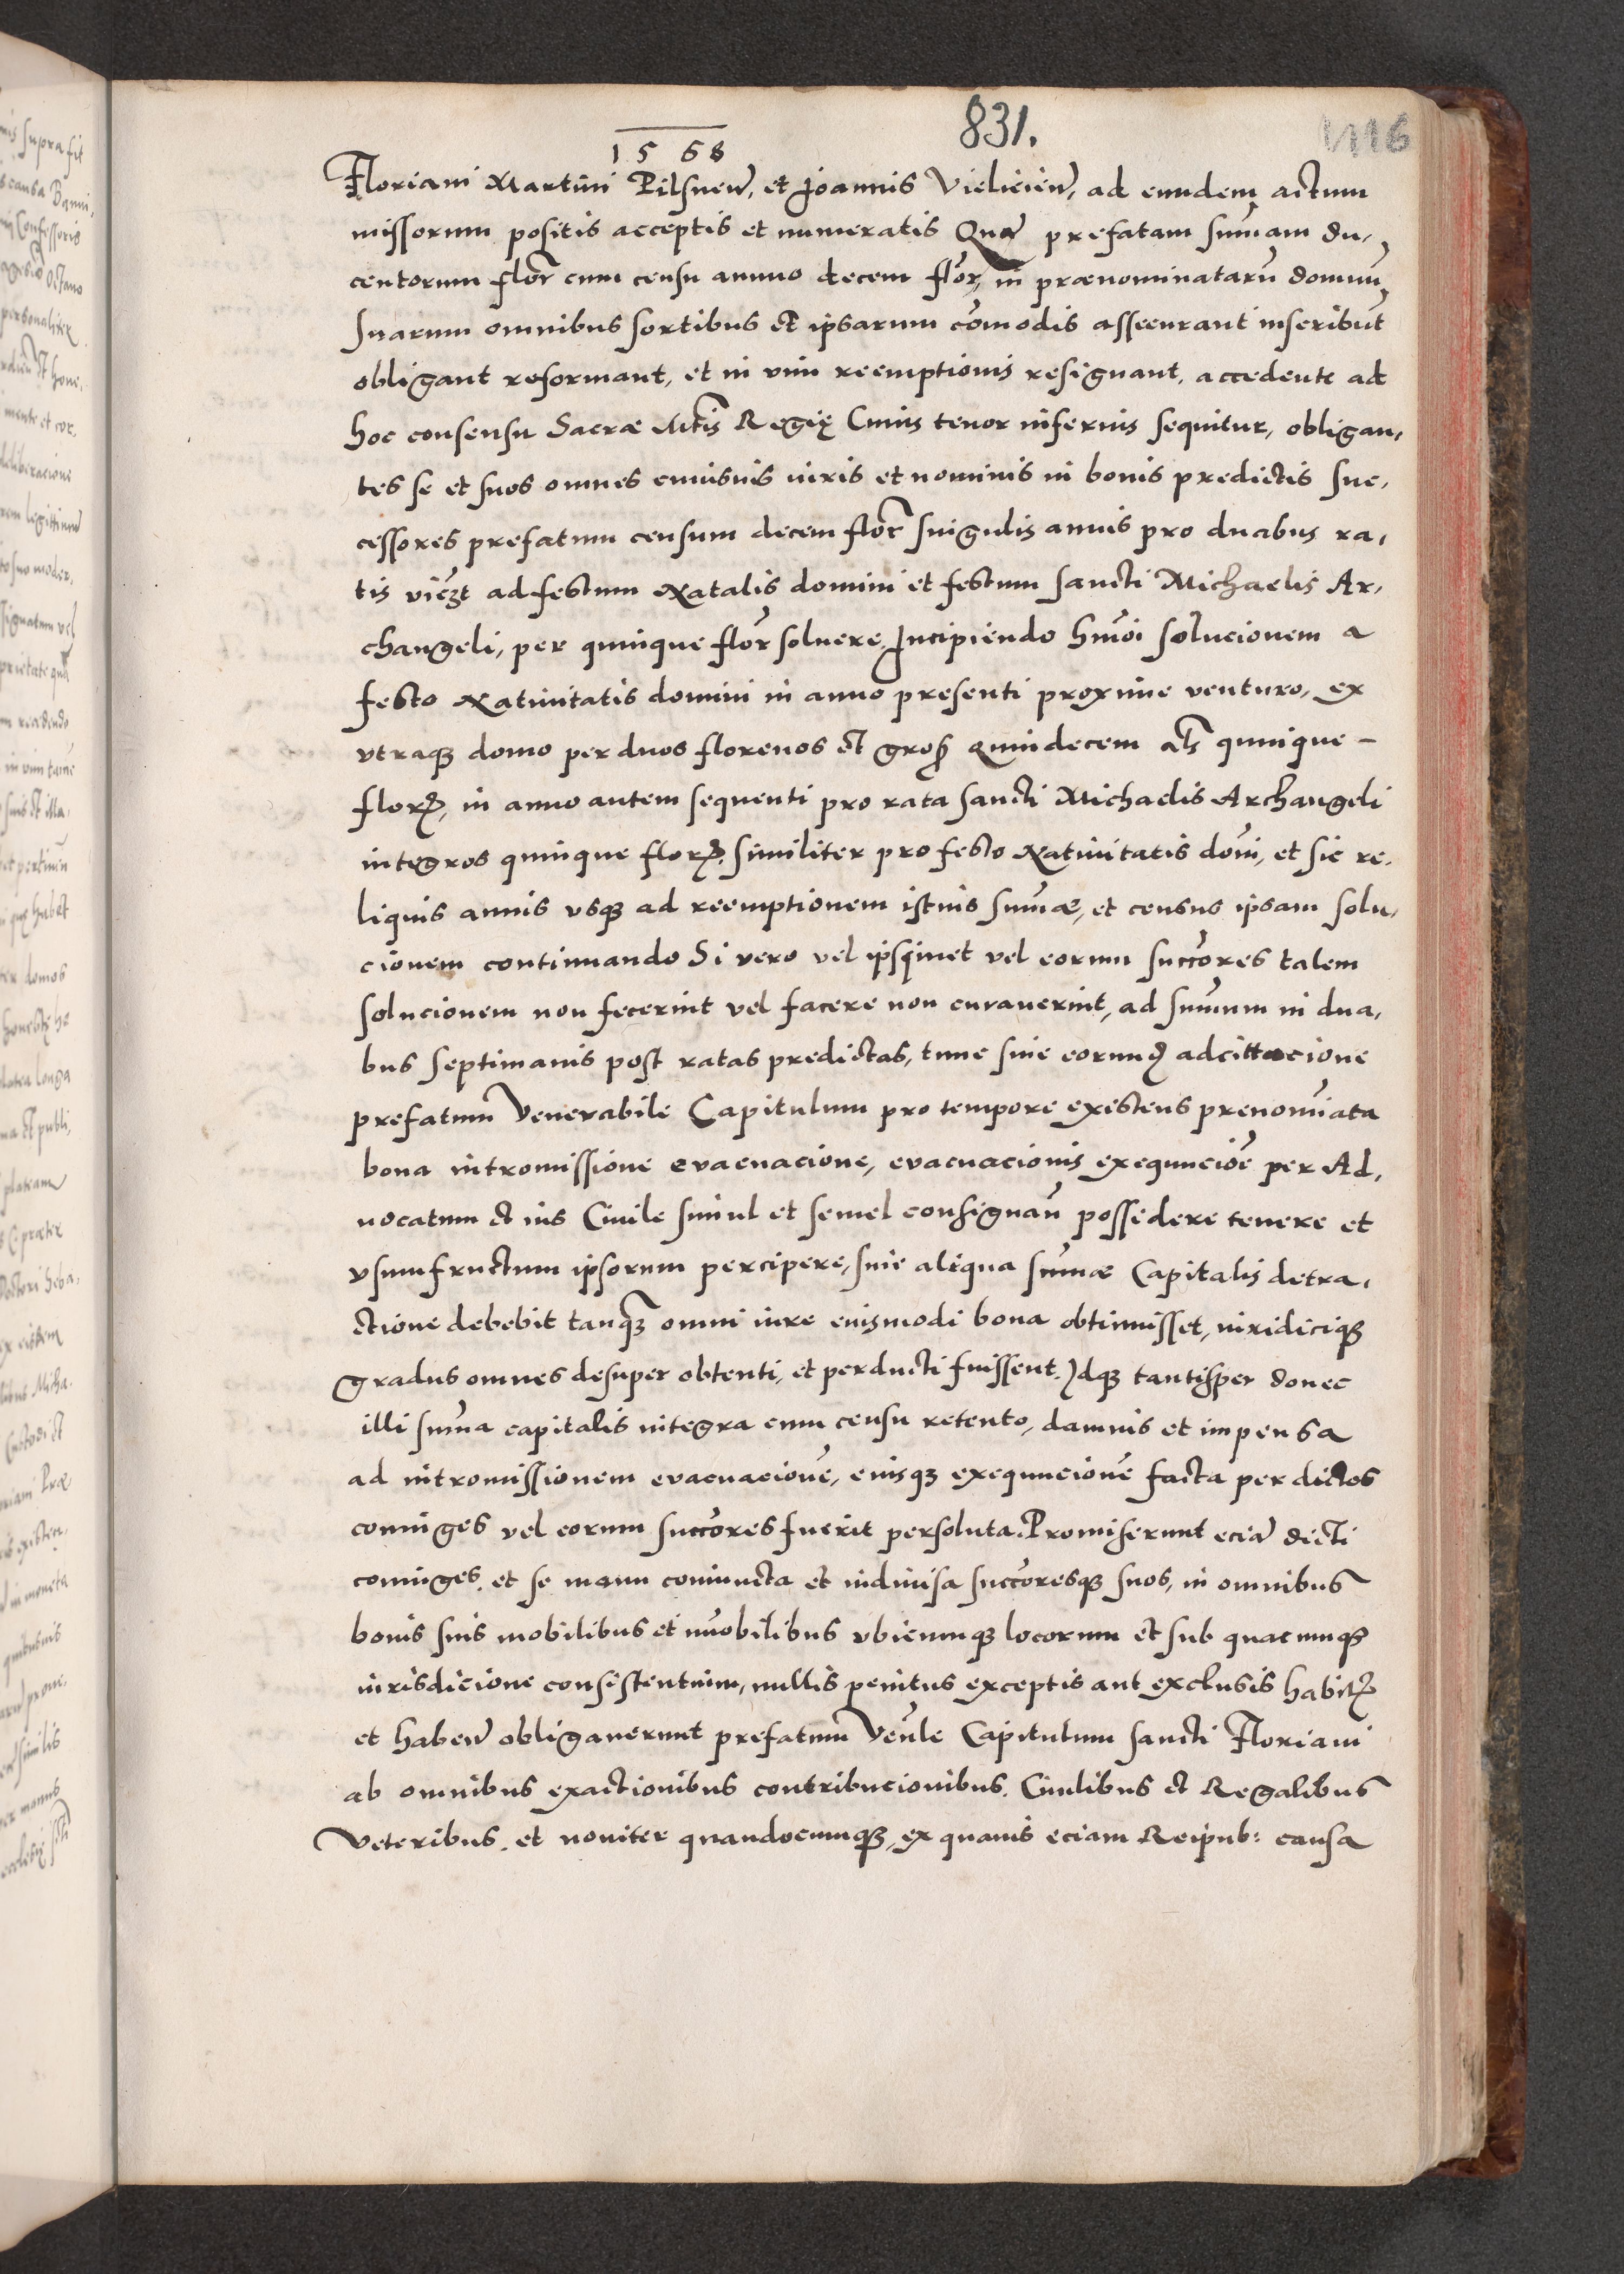 831.
1116
1568
Floriani Martini Pilsnen̄, et Joannis Vielicien̄, ad eundem actum
missorum positis acceptis et numeratis Quā prefatam sum̄am du,
centorum flor̄ cum censu annuo decem flor̄, in prænominatarū domuū
suarum omnibus sortibus et ipsarum com̄odis assecurant inscribūt
obligant reformant, et in vim reemptionis resignant, accedente ad
hoc consensu Sacræ Mtīs Regię Cuius tenor inferius sequitur, obligan,
tes se et suos omnes cuiusuis iuris et nominis in bonis predictis suc,
cessores prefatum censum decem flor̄ singulis annis pro duabus ra,
tis vicꝫt ad festum Natalis domini et festum sancti Michaelis Ar,
changeli, per quinque flor̄ soluere. Incipiendo hmōi solucionem a
festo Natiuitatis domini in anno presenti proxime venturo, ex
vtraqꝫ domo per duos florenos et groß quindecem als̄ quinque –
florꝭ, in anno autem sequenti pro rata sancti Michaelis Archangeli
integros quinque florꝭ. similiter pro festo Natiuitatis dom̄i, et sic re,
liquis annis vsqꝫ ad reemptionem istius sum̄æ, et census ipsam solu,
cionem continuando Si vero vel ipsimet vel eorum succ̄ores talem
solucionem non fecerint vel facere non curauerint, ad sum̄um in dua,
bus septimanis post ratas predictas, tunc sine eorundꝭ adcittacione
prefatum Venerabile Capitulum pro tempore existens prenomīata
bona intromissione evacuacione, evacuacionis exequucioē per Ad,
uocatum et ius Ciuile simul et semel consignan̄ possidere tenere et
vsumfructum ipsorum percipere, sine aliqua sum̄æ Capitalis detra,
ctione debebit tanqꝫ omni iure eiusmodi bona obtinuisset, iuridiciqꝫ
gradus omnes desuper obtenti, et perducti fuissent. Idqꝫ tantisper donec
illi sum̄a capitalis integra cum censu retento, damnis et impensa
ad intromissionem evacuacionē, eiusqꝫ exequucionē facta per dictos
coniuges vel eorum succ̄ores fuerit persoluta. Promiserunt eciā dicti
coniuges. et se manu coniuncta et indiuisa succ̄oresqꝫ suos, in omnibus
bonis suis mobilibus et im̄obilibus vbicumqꝫ locorum et sub quacumqꝫ
iurisdicione consistentium, nullis penitus exceptis aut exclusis habitꝭ
et haben̄ obligauerunt prefatum Ven̄le Capitulum sancti Floriani
ab omnibus exactionibus contribucionibus. Ciuilibus et Regalibus
Veteribus. et nouiter quandocumqꝫ, ex quauis eciam Reipub: causa